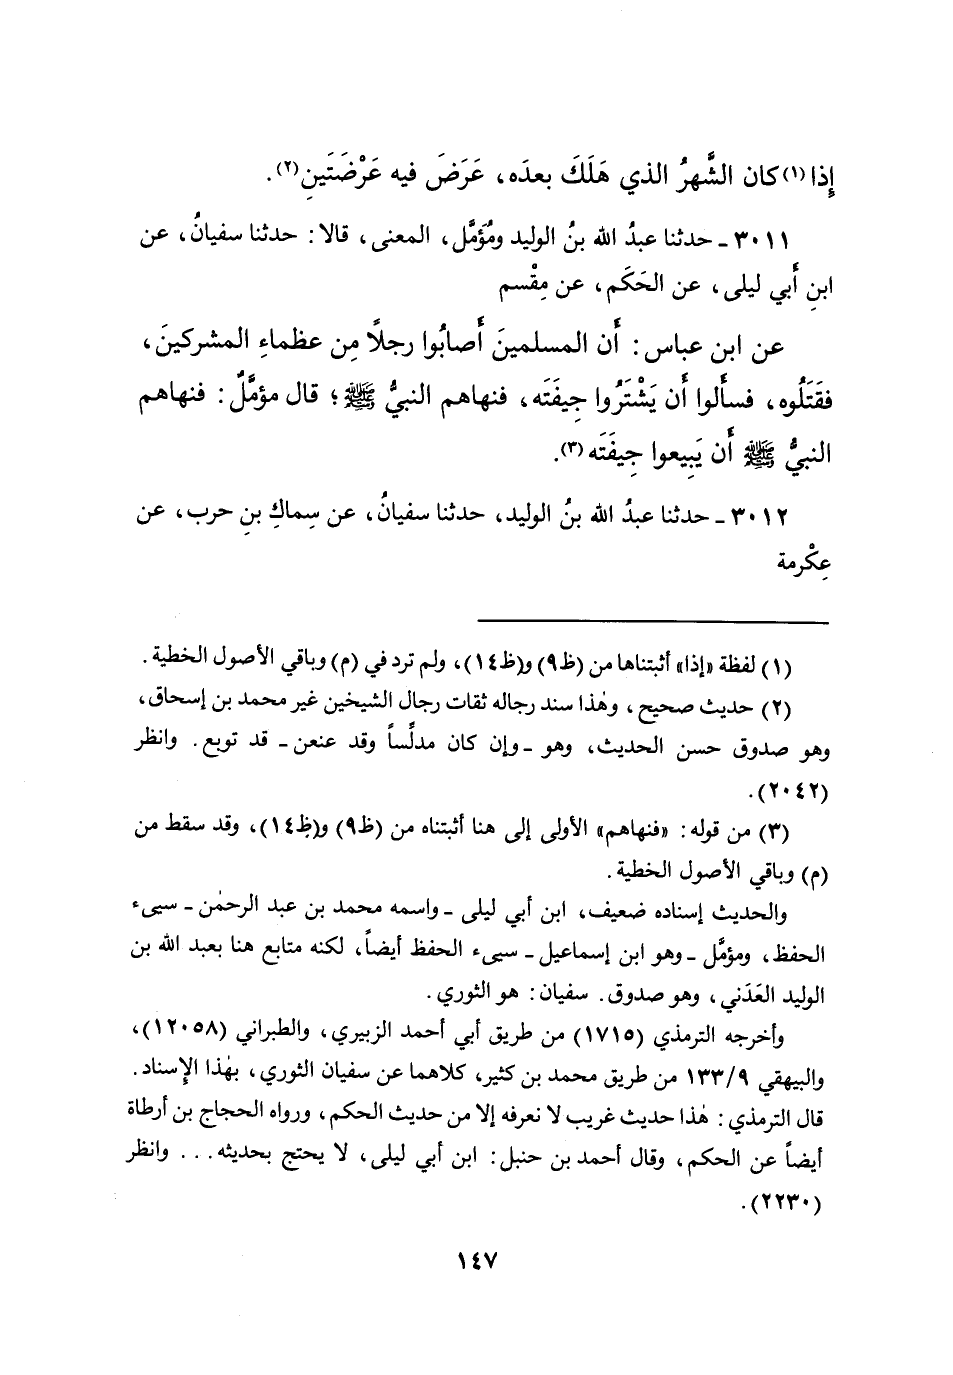 إِذا(١) كان الشَّهرُ الذي هَلَكَ بعدَه، عَرَضَ فيه عَرْضَتَينِ(٢).
٣٠١١ ـ حدثنا عبدُ الله بنُ الوليد ومُؤمَّل، المعنى، قالا: حدثنا سفيانُ، عن
ابنِ أَبي ليلى، عن الحَكَم، عن مِقْسم
عن ابن عباس: أَن المسلمينَ أَصابُوا رجلًا مِن عظماءِ المشركينَ،
فقَتَلُوه، فسأَلوا أَن يَشْتَرُوا جِيفَتَه، فنهاهم النبيُّ ﷺ؛ قال مؤمَّلٌ: فنهاهم
النبيُّ ﷺ أَن يَبِيعوا جِيفَتَه(٣).
٣٠١٢ ـ حدثنا عبدُ الله بنُ الوليد، حدثنا سفيانُ، عن سِماكِ بنِ حرب، عن
عِكْرمة
(١) لفظة «إذا» أثبتناها من (ظ٩) و(ظ١٤)، ولم ترد في (م) وباقي الأصول الخطية.
(٢) حديث صحيح، وهٰذا سند رجاله ثقات رجال الشيخين غير محمد بن إسحاق،
وهو صدوق حسن الحديث، وهو ـ وإن كان مدلِّساً وقد عنعن ـ قد توبع. وانظر
(٢٠٤٢).
(٣) من قوله: «فنهاهم» الأولى إلى هنا أثبتناه من (ظ٩) و(ظ١٤)، وقد سقط من
(م) وباقي الأصول الخطية.
والحديث إسناده ضعيف، ابن أبي ليلى ـ واسمه محمد بن عبد الرحمٰن ـ سيىء
الحفظ، ومؤمَّل ـ وهو ابن إسماعيل ـ سيىء الحفظ أيضاً، لكنه متابع هنا بعبد الله بن
الوليد العَدَني، وهو صدوق. سفيان: هو الثوري.
وأخرجه الترمذي (١٧١٥) من طريق أبي أحمد الزبيري، والطبراني (١٢٠٥٨)،
والبيهقي ١٣٣/٩ من طريق محمد بن كثير، كلاهما عن سفيان الثوري، بهٰذا الإسناد.
قال الترمذي: هٰذا حديث غريب لا نعرفه إلا من حديث الحكم، ورواه الحجاج بن أرطاة
أيضاً عن الحكم، وقال أحمد بن حنبل: ابن أبي ليلى، لا يحتج بحديثه... وانظر
(٢٢٣٠).
١٤٧